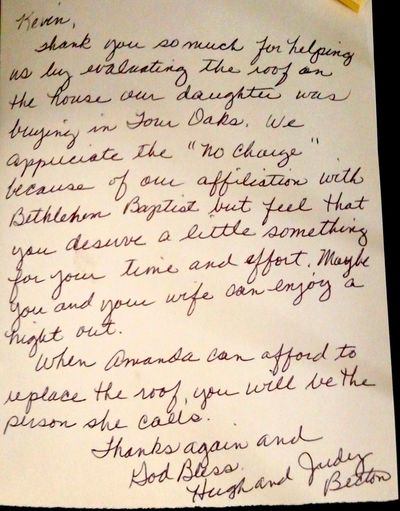 Kevin,
Thank you so much for helping
us by evaluating the roof on
the house our daughter was
buying in Four Oaks. We
appreciate the "no charge"
because of our affiliation with
Bethlehem Baptist but feel that
you deserve a little something
for your time and effort. Maybe
you and your wife can enjoy a
night out.
When Amanda can afford to
replace the roof, you will be the
person she calls.
Thanks again and
God Bless.
Hugh and Judy
Beaton